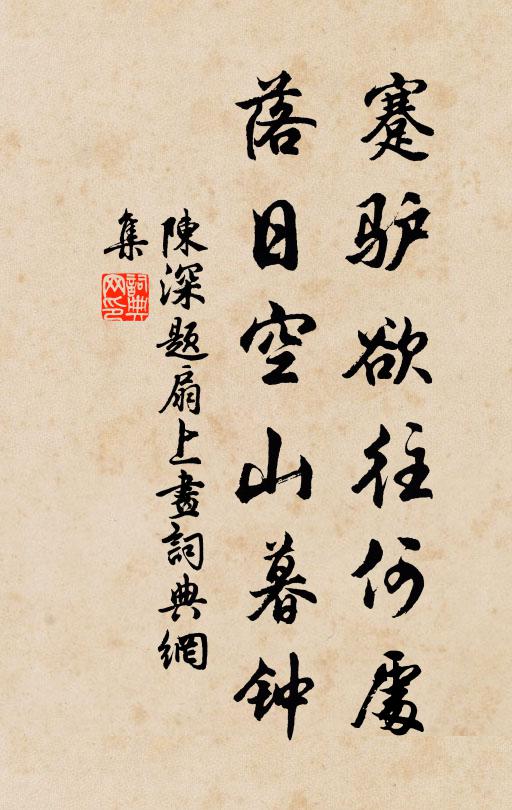 蹇驴欲往何處
落日空山暮钟
陳深题扇上畫詞典網
集
詞典
网印